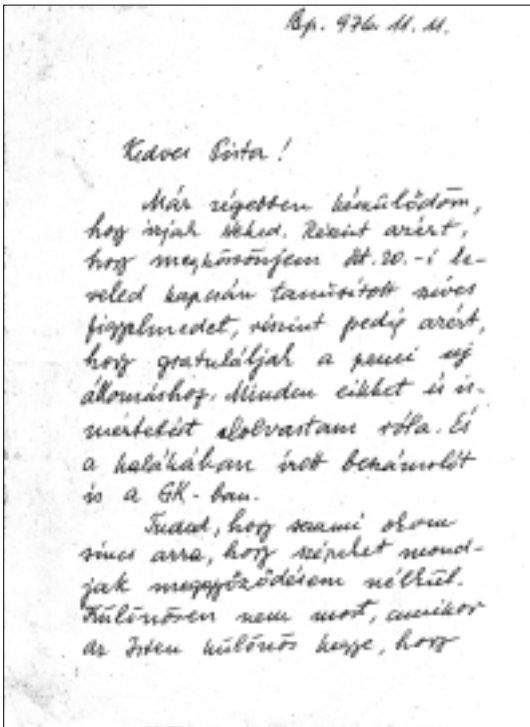 Bp. 976. 11. 11.
Kedves Pista!
Már régebben készülődöm,
hogy írjak Neked. Részint azért,
hogy megköszönjem   20.-i le-
veled kapcsán tanúsított szíves
figyelmedet, részint pedig azért,
hogy gratuláljak a   új
állomáshoz. Minden cikket és is-
mertetést elolvastam róla. És
a   írott beszámolót
is a GK-ban.
Tudod, hogy semmi okom
sincs arra, hogy szépeket mond-
jak meggyőződésem nélkül.
Különösen nem most, amikor
az Isten különös kegye, hogy